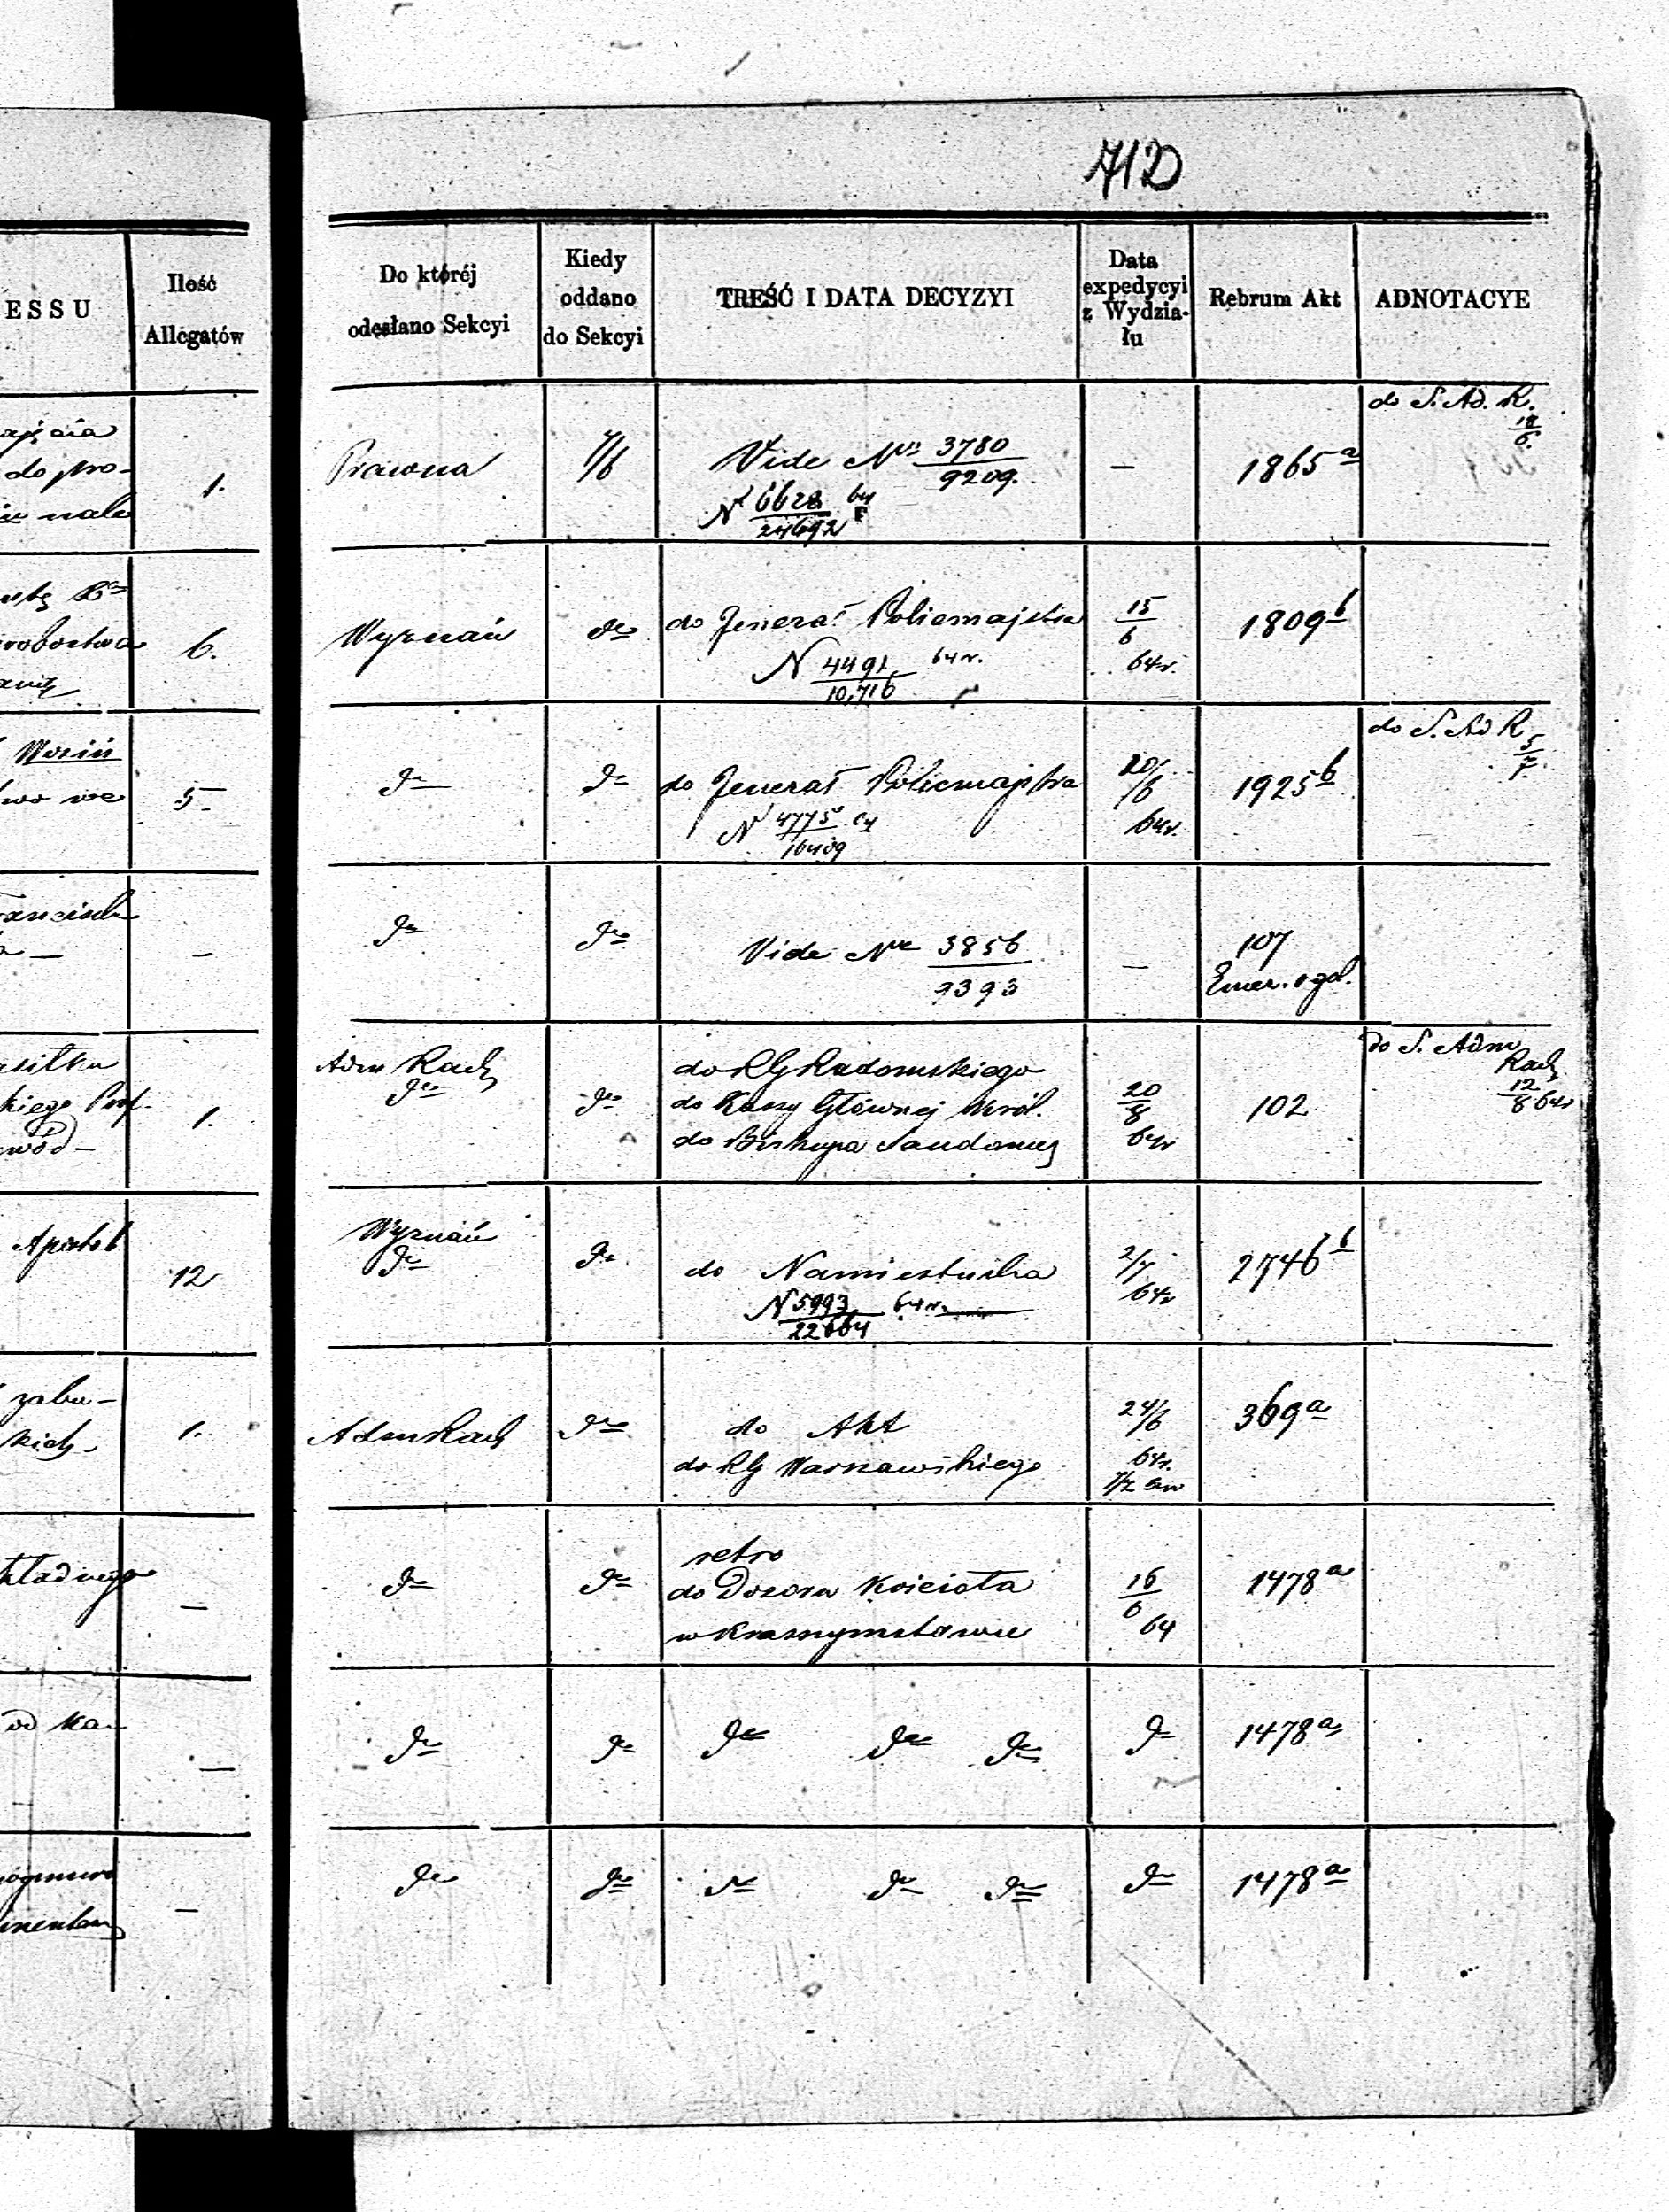 712
ESSU
Ilość
Allegatów
Do któréj
odesłano Sekcyi
Kiedy
oddano
do Sekcyi
TREŚĆ I DATA DECYZYI
Data
expedycyi
z Wydzia-
łu
Rebrum Akt
ADNOTACYE
do pro-
1.
Prawna
7/6
Vide Nr 3780
9209.
N 6628 64
24692
—
1865 a
do S. Ad. R.
18
6
6.
Wyznań
do
do Jenerał Policmajstra
N 4491 64 r.
10,716
15
6
64 r.
1809 b
5.
do
do
do Jenerał Policmajstra
N 4775 64
20/6
64 r.
1925 b
do S. Ad R
5
7
—
do
do
Vide Nr 3856
9393
—
107
do
1.
Adm Rach
do
do
do RG Radomskiego
do Kassy Głównej Król.
do Biskupa Sandomier
20
8
64 r
102
do S. Adm
Rach
12
8 64 r
12
Wyznań
do
do
do Namiestnika
N 5993 64 r.
22664
2/7
64 r
2746 b
zabu-
kich
1.
Adm Rach
do
do Akt
do RG Warszawskiego
24/6
64 r.
369 a
kładnego
—
do
do
retro
do Dozoru Kościoła
w Krasnymstawie
16
6
64
1478 a
od Ka-
—
do
do
do do do
do
1478 a
—
do
do
do do do
do
1478 a